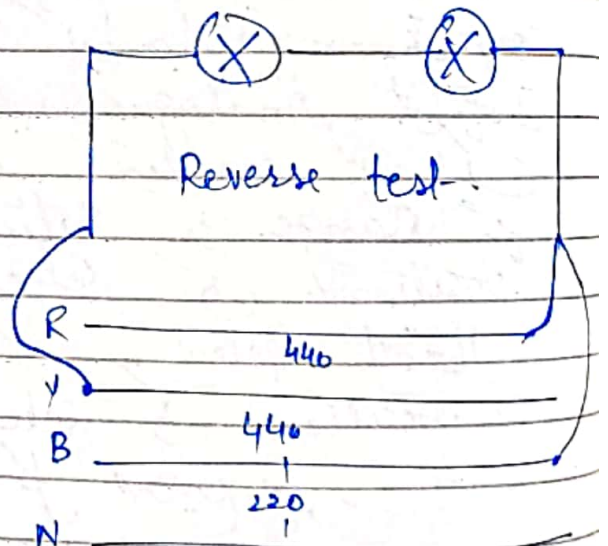 X X
Reverse test.
R
440
Y
440
B
220
N